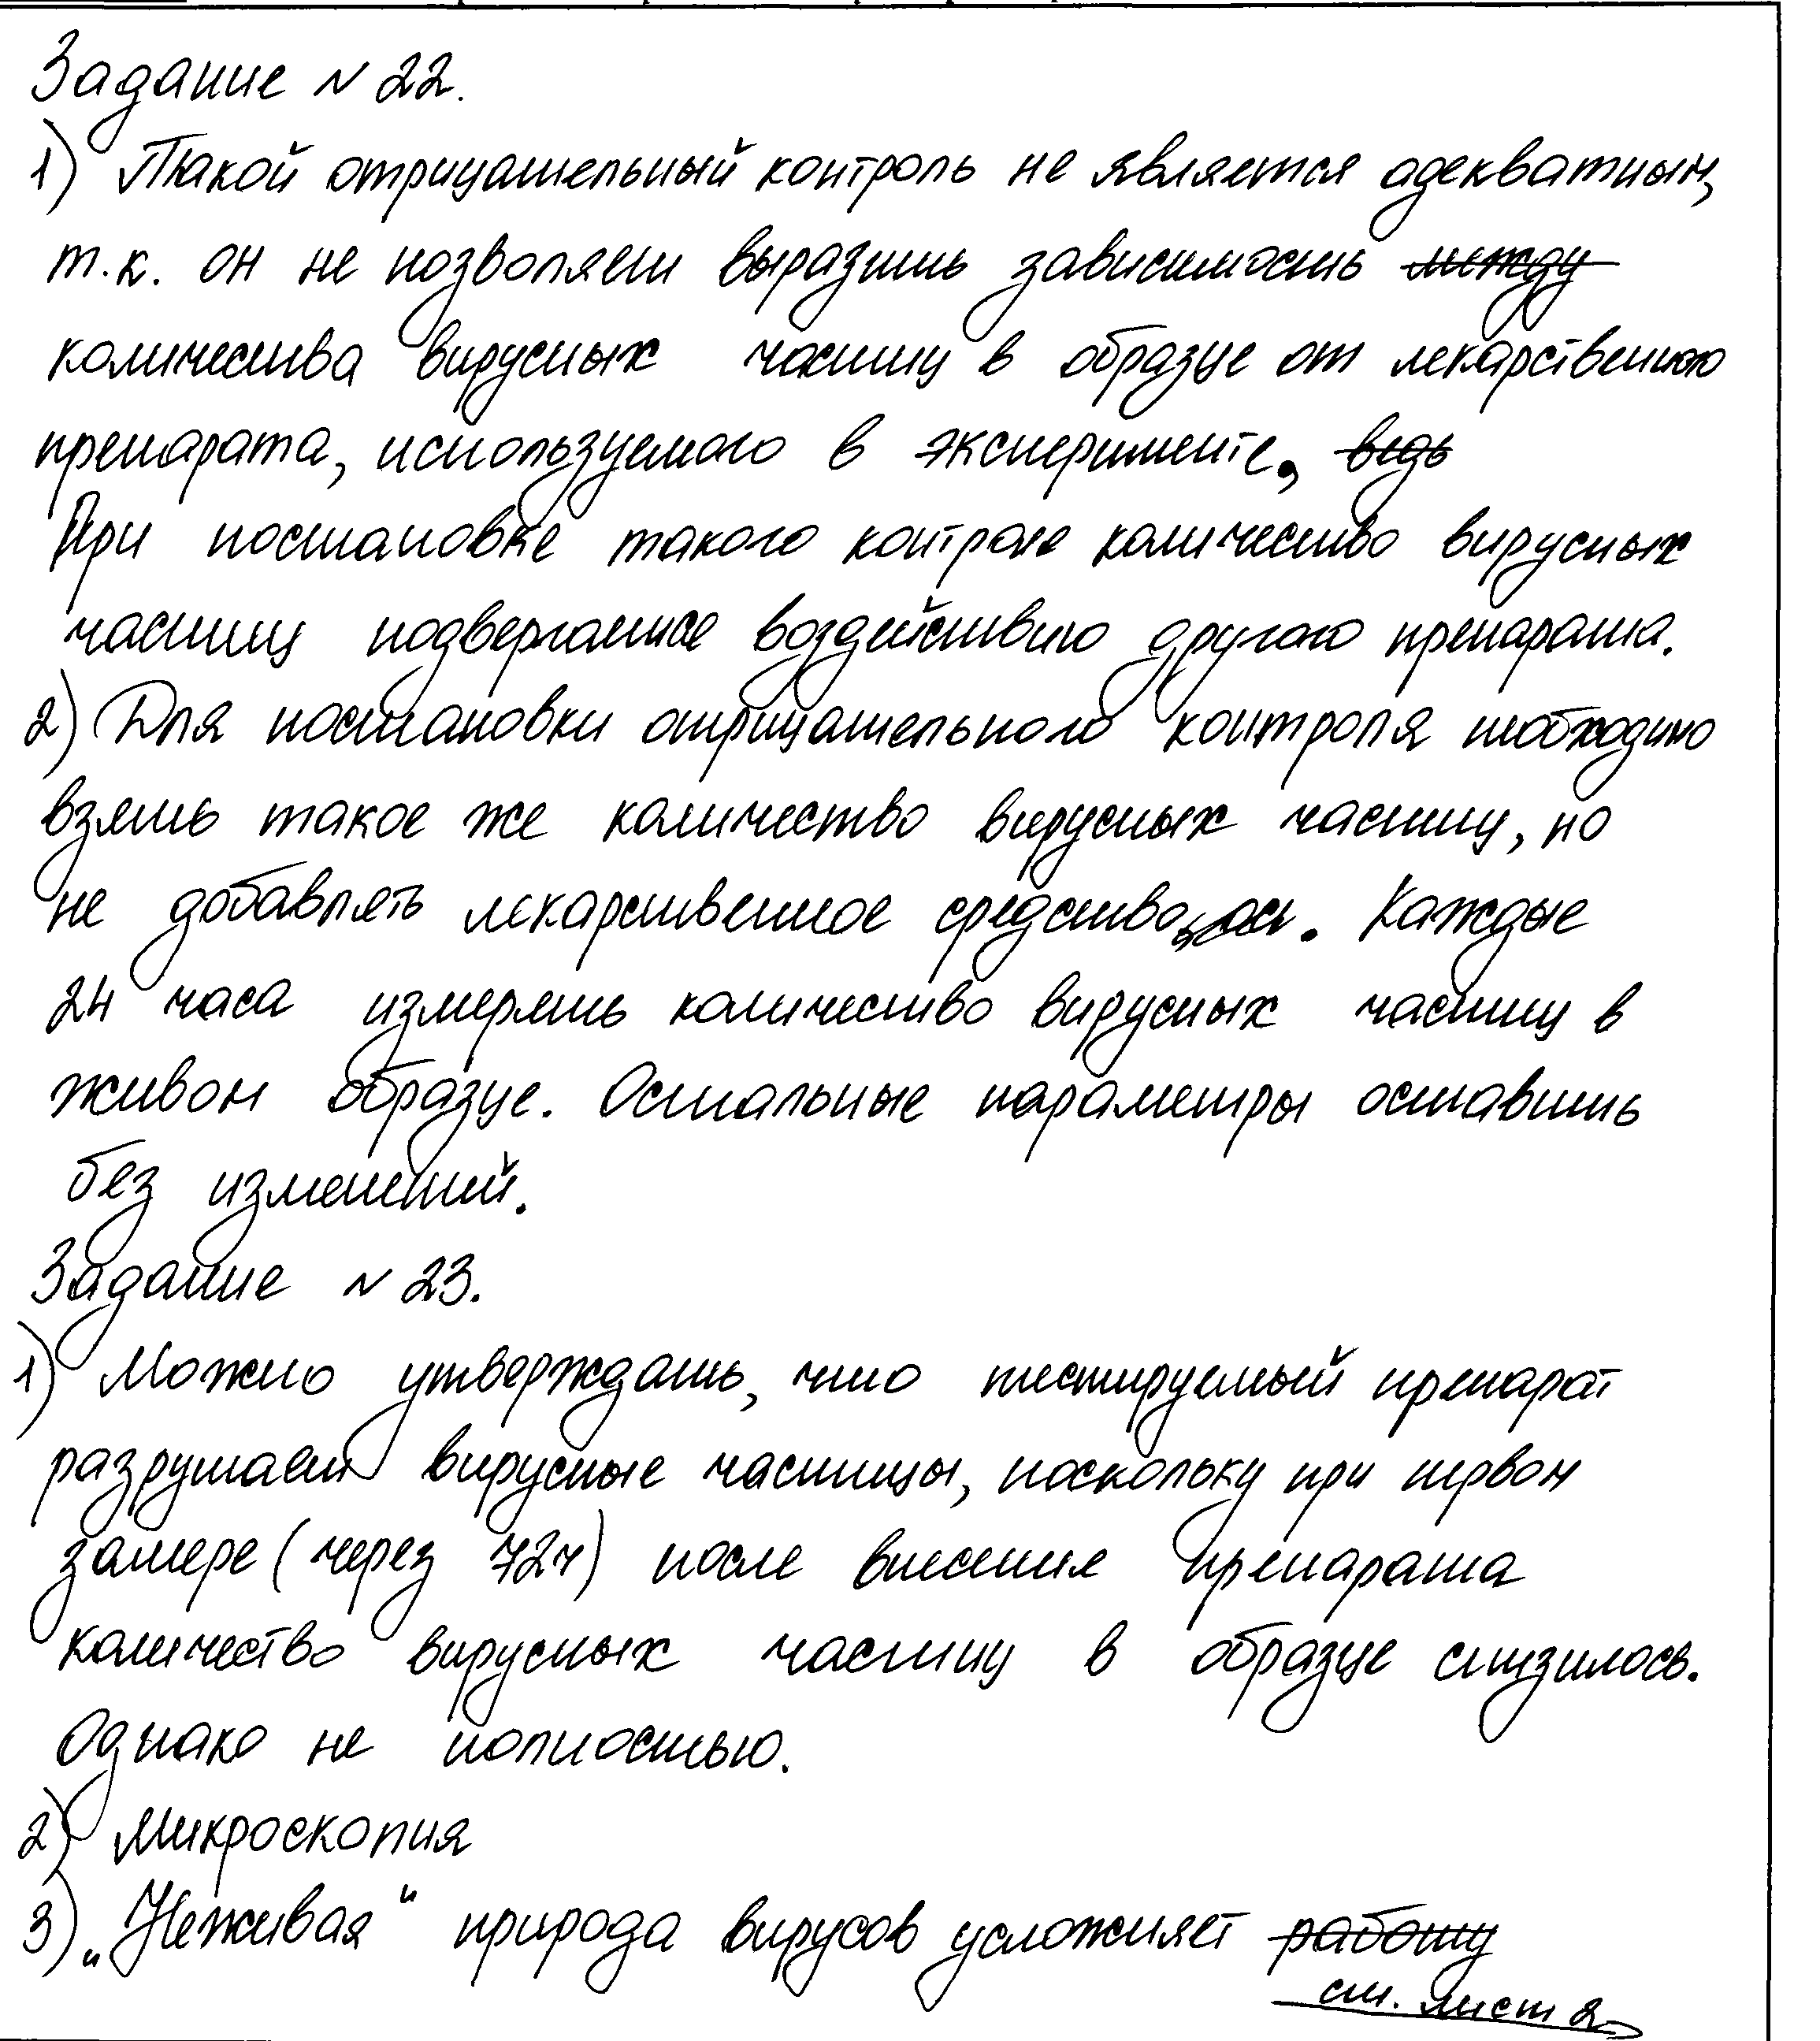 Задание N 22.
1) Такой отрицательный контроль не является адекватным,
т.к. он не позволяет выразить зависимость между
количества вирусных частиц в образце от лекарственного
препарата, используемого в эксперименте. ведь
При постановке такого контроле количество вирусных
частиц подвергаешсе воздействию другого препарата.
2) Для постановки отрицательного контроля необходимо
взять такое же количество вирусных частиц, но
не добавлять лекарственное средство. Каждые
24 часа измерять количество вирусных частиц в
живом образце. Остальные параметры оставить
без изменений.
Задание N 23.
1) Можно утверждать, что тестируемый препарат
разрушает вирусные частицы, поскольку при первом
замере (через 72ч) после внесения препарата
количество вирусных частиц в образце снизилось.
Однако не полностью.
2) Микроскопия
3) „Неживая" природа вирусов усложняет работу
см. лист 2